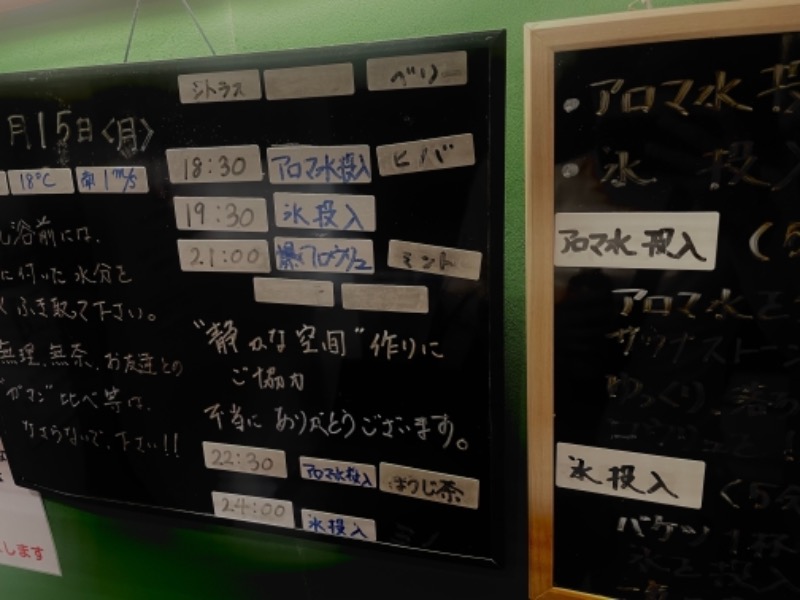 シトラス
月15日〈月〉
18:30 アロマ水投入 ヒバ
18℃ 1m/s
19:30 氷投入
21:00 ミント
浴前には、
に付いた水分を
ふき取って下さい。
無理、無茶、お友達との
"ガマン"比べ等は、
なさらないで、下さい!!
"静かな空間"作りに
ご協力
本当にありがとうございます。
22:30 アロマ水投入 ほうじ茶
24:00 氷投入
します
・アロマ水投
・氷 投入
アロマ水投入 (5
アロマ水を
サウナストーン
ゆっくり、
氷投入 (5分
バケツ1杯